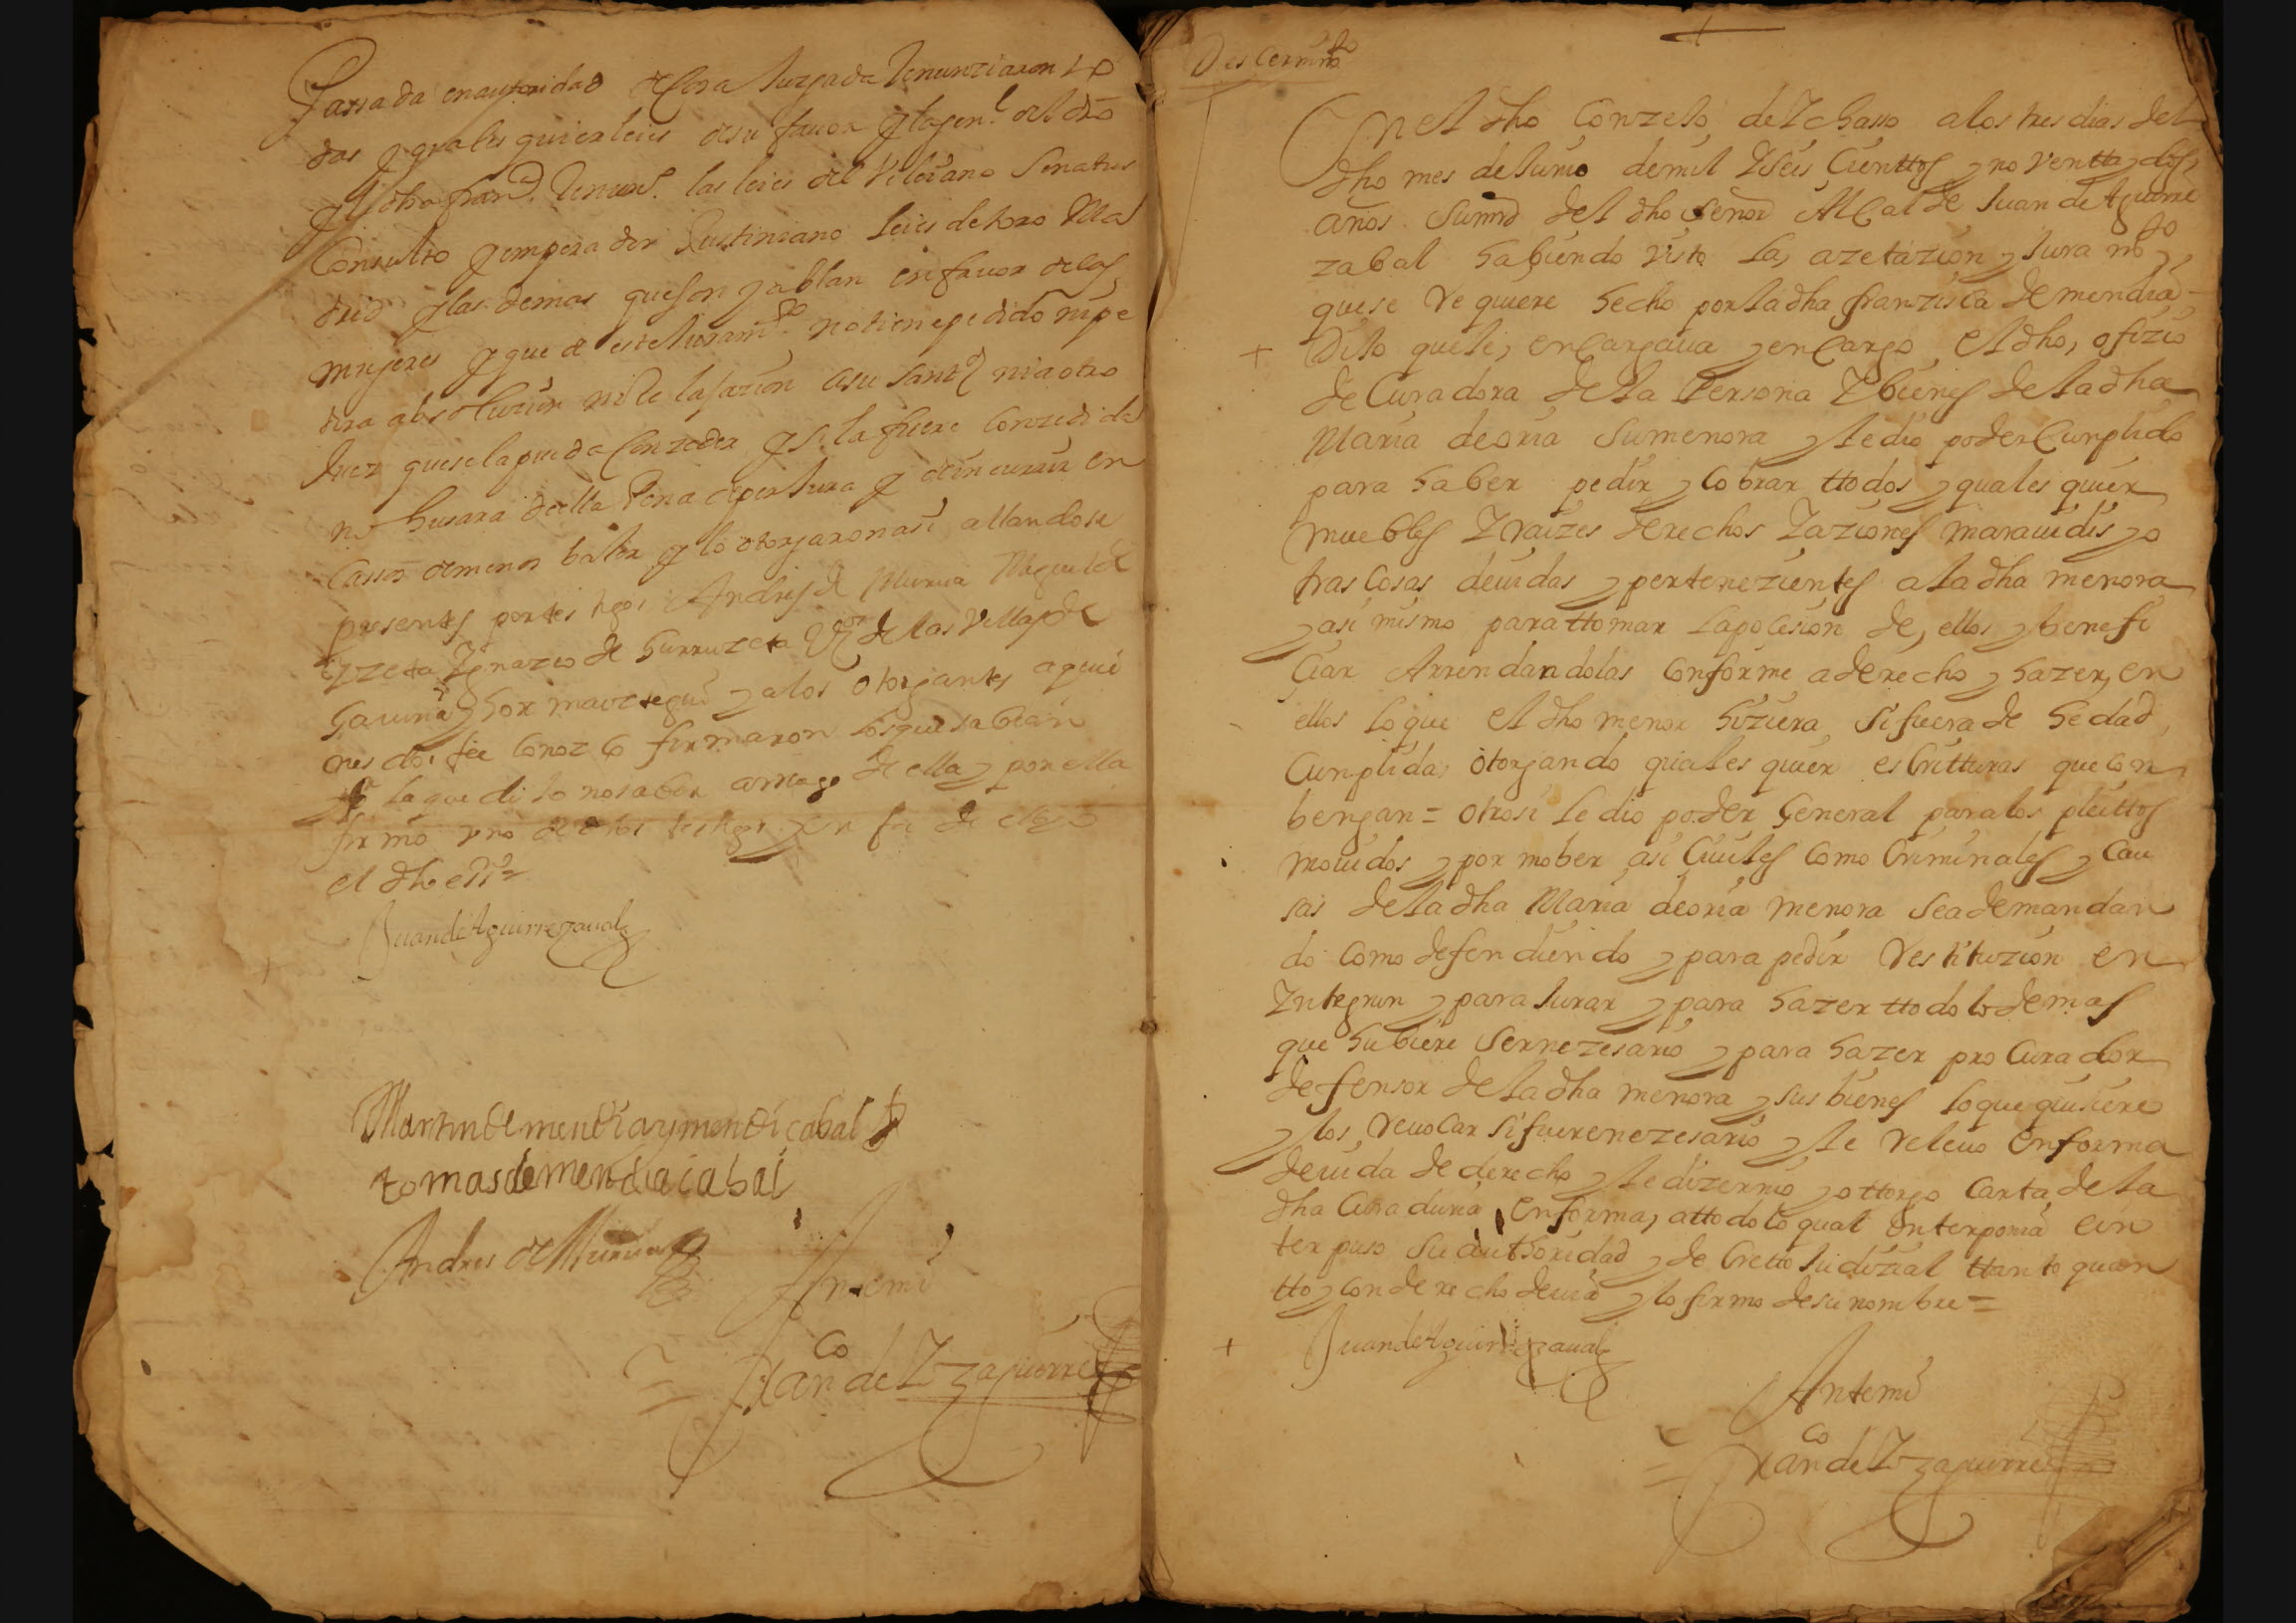 Passada en autoridad de Cosa Juzgada Renunziaron to
das y quales quier leies de su favor y la gen.l del dro
y la dha fran.ca Renun.o las leies del Veleiano Senatus
Consulto y emperador Justiniano leies de toro Ma
drid y las demas que son y ablan en favor de las
mujeres y que de este Juram.to no tiene pedido ni pe
dira absoluzion ni Relasazion a su Santd ni a otro
Juez que se la pueda Conzeder y si la fuere Conzedida
no husara de ella Pena de perJura y de incurrir en
Casso de menos baler y lo otorgaron asi allandose
presentes por testigos Andres de Murua Miguel de
Yzeta Ygnazio de Surruzeta Vos de las Villas de
Gauiria y hormaiztegui y a los otorgantes a quie
nes doi fee Conozco firmaron los que sabian
y la que dixo no saber a ruego de ella y por ella
firmo vno de dhos testigos y en fe de ello
el dho essno
Juan de Aguirrezaual
Martin de mendia y mendiçabal
tomas de mendiaiabal
Andres de Murua
Antemi
Franco de Yzaguirre
Descernimto
En el dho Conzejo de Ychasso a los tres dias del
dho mes de Junio de mil Y seis Cienttos y noventta y dos
años su mrd del dho señor Alcalde Juan de Aguirre
zabal habiendo visto la azetazion y Juramto
que se Requiere hecho por la dha franzisca de mendia
Dijo que le encargaua y encargo el dho ofizio
de Curadora de la Persona Y bienes de la dha
Maria de oria su menora y le dio poder Cunplido
para haber pedir y Cobrar ttodos y quales quier
muebles Y raizes derechos Y aziones marauidis y o
tras Cosas deuidas y pertenezientes a la dha menora
y asi mismo para ttomar la posesion de ellos y benefi
Ciar Arrendandolas Conforme a derecho y hazer en
ellos lo que el dho menor hiziera si fuera de hedad
Cunplida otorgando quales quier escritturas que Con
bengan = otrosi le dio poder General para los pleittos
mouidos y por mober asi Ciuiles Como Criminales y Cau
sas de la dha Maria de oria menora sea demandan
do Como defendiendo y para pedir Restituzion en
Yntegrun y para Jurar y para hazer ttodo lo demas
que hubiere ser nezesario y para hazer proCurador
defensor de la dha menora y sus bienes lo que quisiere
y los ReuoCar si fuere nezesario y le Releuo en forma
deuida de derecho y le dizernio y ottorgo Carta de la
dha Curaduria en forma, a ttodo lo qual Ynterponia e in
terpuso su authoridad y decretto Judizial ttanto quan
tto y con derecho deuia y lo firmo de su nombre =
Juan de Aguirrezaual
Antemi
Franco de Yzaguirre